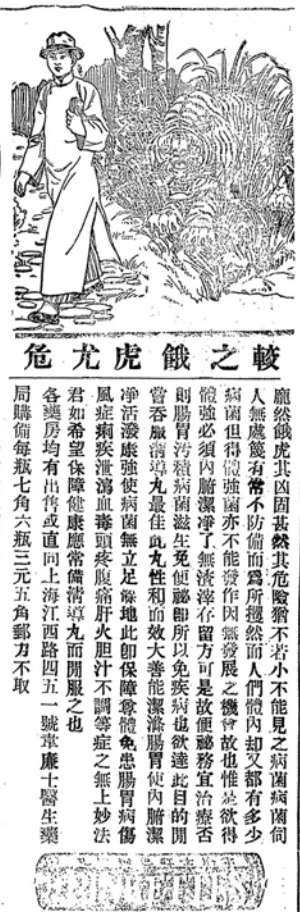 較之餓虎尤危
龐然餓虎其凶固甚然其危險猶不若小不能見之病菌病菌伺
人無處蔑有常不防備而爲所攫然而人們體內却又都有多少
病菌但得體強菌亦不能發作因無發展之機會故也惟是欲得
體強必須內腑潔凈了無渣滓存留方可是故便祕務宜治療否
則腸胃汚積病菌滋生免便祕卽所以免疾病也欲達此目的閒
嘗吞服清導丸最佳此丸性和而效大善能潔滌腸胃使內腑潔
凈活潑康強使病菌無立足餘地此卽保障尊體免患腸胃病傷
風症痢疾泄瀉血毒頭疼腹痛肝火胆汁不調等症之無上妙法
君如希望保障健康應常備清導丸而閒服之也
各藥房均有出售或直向上海江西路四五一號韋廉士醫生藥
局購備每瓶七角六瓶三元五角郵力不取
PINKETTES